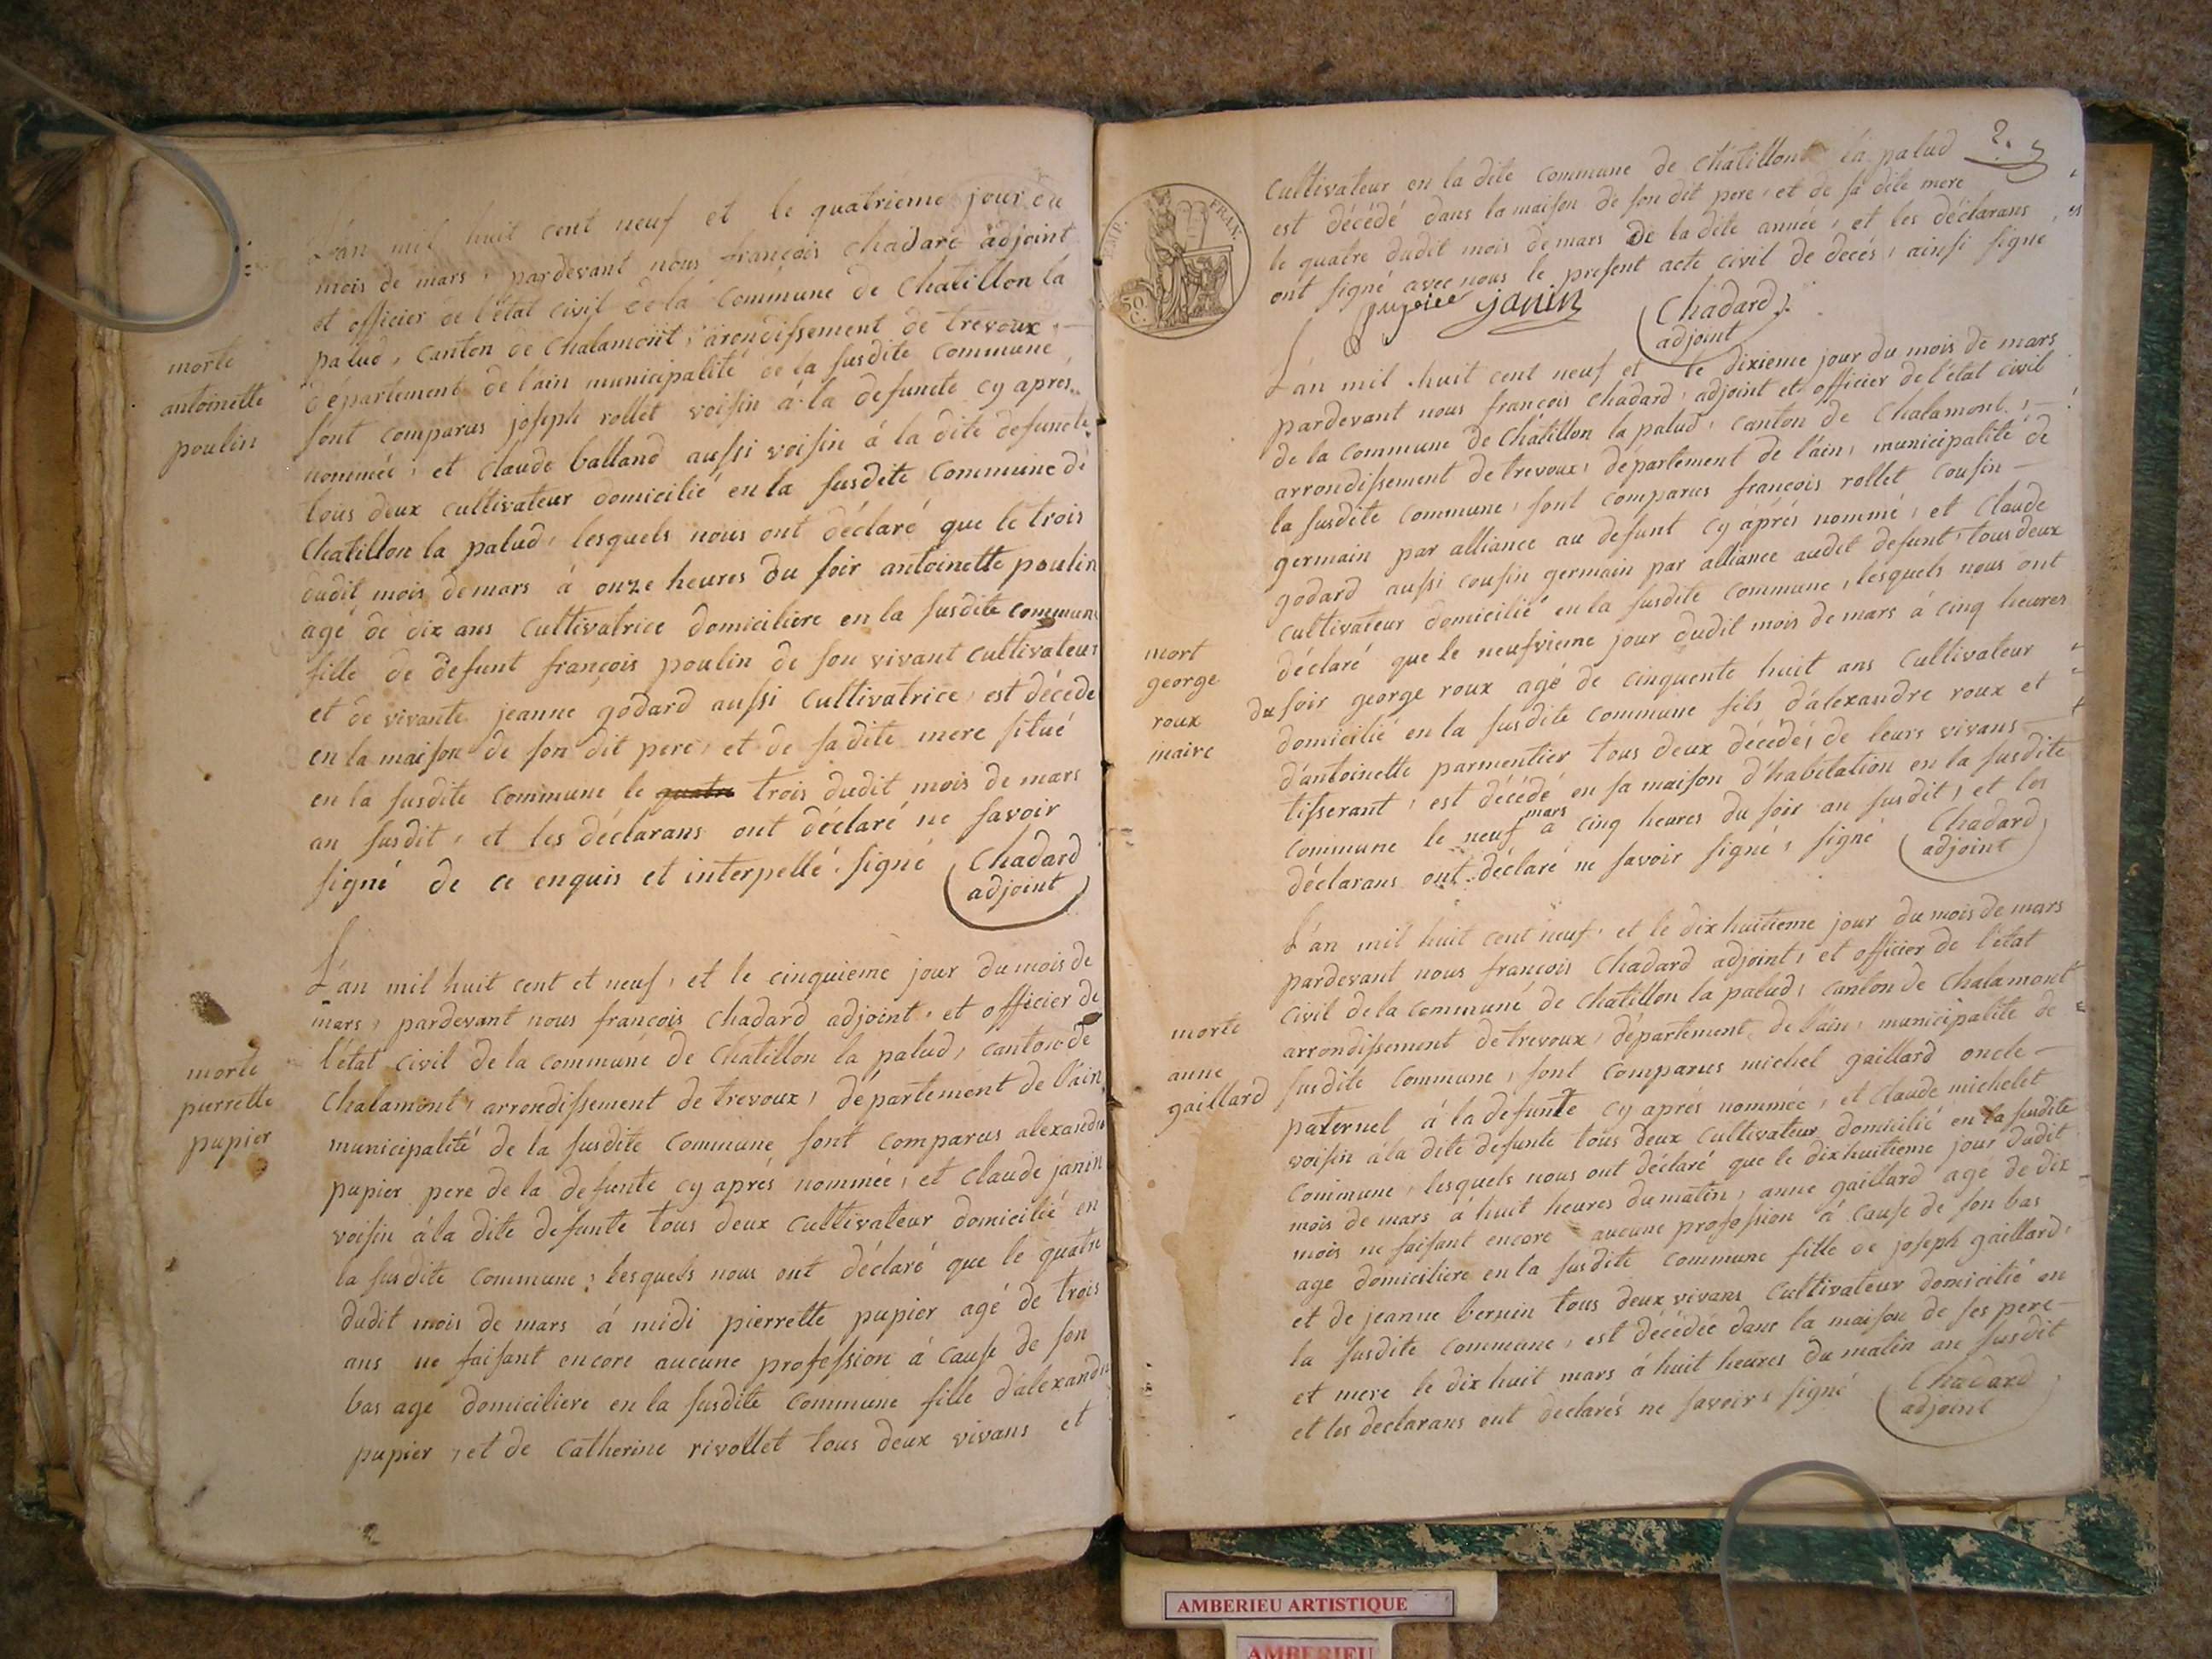 L'an mil huit cent neuf et le quatrieme jour du
mois de mars, pardevant nous françois chadard adjoint
et officier de l'état civil de la commune de chatillon la
palud, canton de chalamont, arondissement de trevoux,
département de l'ain municipalité de la susdite commune,
morte
antoinette
poulin
sont comparus joseph rollet voisin à la defuncte cy aprés
nommée, et claude balland aussi voisin à la dite defuncte
tous deux cultivateur domicilié en la susdite commune de
chatillon la palud, lesquels nous ont déclaré que le trois
dudit mois de mars à onze heures du soir antoinette poulin
agé de dix ans cultivatrice domiciliere en la susdite commune
fille de defunt françois poulin de son vivant cultivateur
et de vivante jeanne godard aussi cultivatrice, est décédé
en la maison de son dit pere, et de sa dite mere situé
en la susdite commune le quatre trois dudit mois de mars
an susdit, et les déclarans ont declaré ne savoir
signé de ce enquis et interpellé. signé Chadard
adjoint
L'an mil huit cent et neuf, et le cinquieme jour du mois de
mars, pardevant nous françois chadard adjoint, et officier de
l'état civil de la communé de chatillon la palud, canton de
morte
pierrette
pupier
chalamont, arrondissement de trevoux, département de l'ain
municipalité de la susdite commune sont comparus alexandre
pupier pere de la defunte cy aprés nommée, et claude janin
voisin à la dite defunte tous deux cultivateur domicilié en
la susdite commune, lesquels nous ont déclaré que le quatre
dudit mois de mars à midi pierrette pupier agé de trois
ans ne faisant encore aucune profession à cause de son
bas age domiciliere en la susdite commune fille d'alexandre
pupier, et de catherine rivollet tous deux vivans et
2.
cultivateur en la dite commune de chatillont la palud
est décédé dans la maison de son dit pere, et de sa dite mere
le quatre dudit mois de mars de la dite année, et les déclarans
ont signé avec nous le present acte civil de decés, ainsi signe
EMP. FRAN.
50
C.
janin Chadard
adjoint
L'an mil huit cent neuf et le dixieme jour du mois de mars
pardevant nous françois chadard, adjoint et officier de l'état civil
de la commune de chatillon la palud, canton de chalamont,
arrondissement de trevoux, département de l'ain, municipalité de
la susdite commune, sont comparus françois rollet cousin
germain par alliance au defunt cy áprés nommé, et claude
godard aussi cousin germain par alliance audit defunt, tous deux
cultivateur domicilié en la susdite commune, lesquels nous ont
mort
george
roux
maire
déclaré que le neufvieme jour dudit mois de mars à cinq heures
du soir george roux agé de cinquente huit ans cultivateur
domicilié en la susdite commune fils d'alexandre roux et
d'antoinette parmentier tous deux décédés de leurs vivans
tisserant, est décédé en sa maison d'habitation en la susdite
commune le neuf mars à cinq heures du soir an susdit, et les
déclarans ont déclaré ne savoir signé, signé Chadard
adjoint
L'an mil huit cent neuf, et le dix huitieme jour du mois de mars
pardevant nous françois chadard adjoint, et officier de l'état
civil de la communé de chatillon la palud, canton de chalamont
morte
anne
gaillard
arrondissement de trevoux, département de l'ain, municipalité de
susdite commune, sont comparus michel gaillard oncle
paternel à la défunte cy aprés nommée, et claude michelet
voisin à la dite défunte tous deux cultivateur domicilié en la susdite
commune, lesquels nous ont déclaré que le dixhuitieme jour dudit
mois de mars à huit heures du matin, anne gaillard agé de dix
mois ne faisant encore aucune profession à cause de son bas
age domiciliere en la susdite commune fille de joseph gaillard,
et de jeanne bernin tous deux vivans cultivateur domicilié en
la susdite commune, est décédée dans la maison de ses pere
et mere le dix huit mars à huit heures du matin an susdit
et les declarans ont declarés ne savoir, signé Chadard
adjoint
AMBERIEU ARTISTIQUE
AMBERIEU